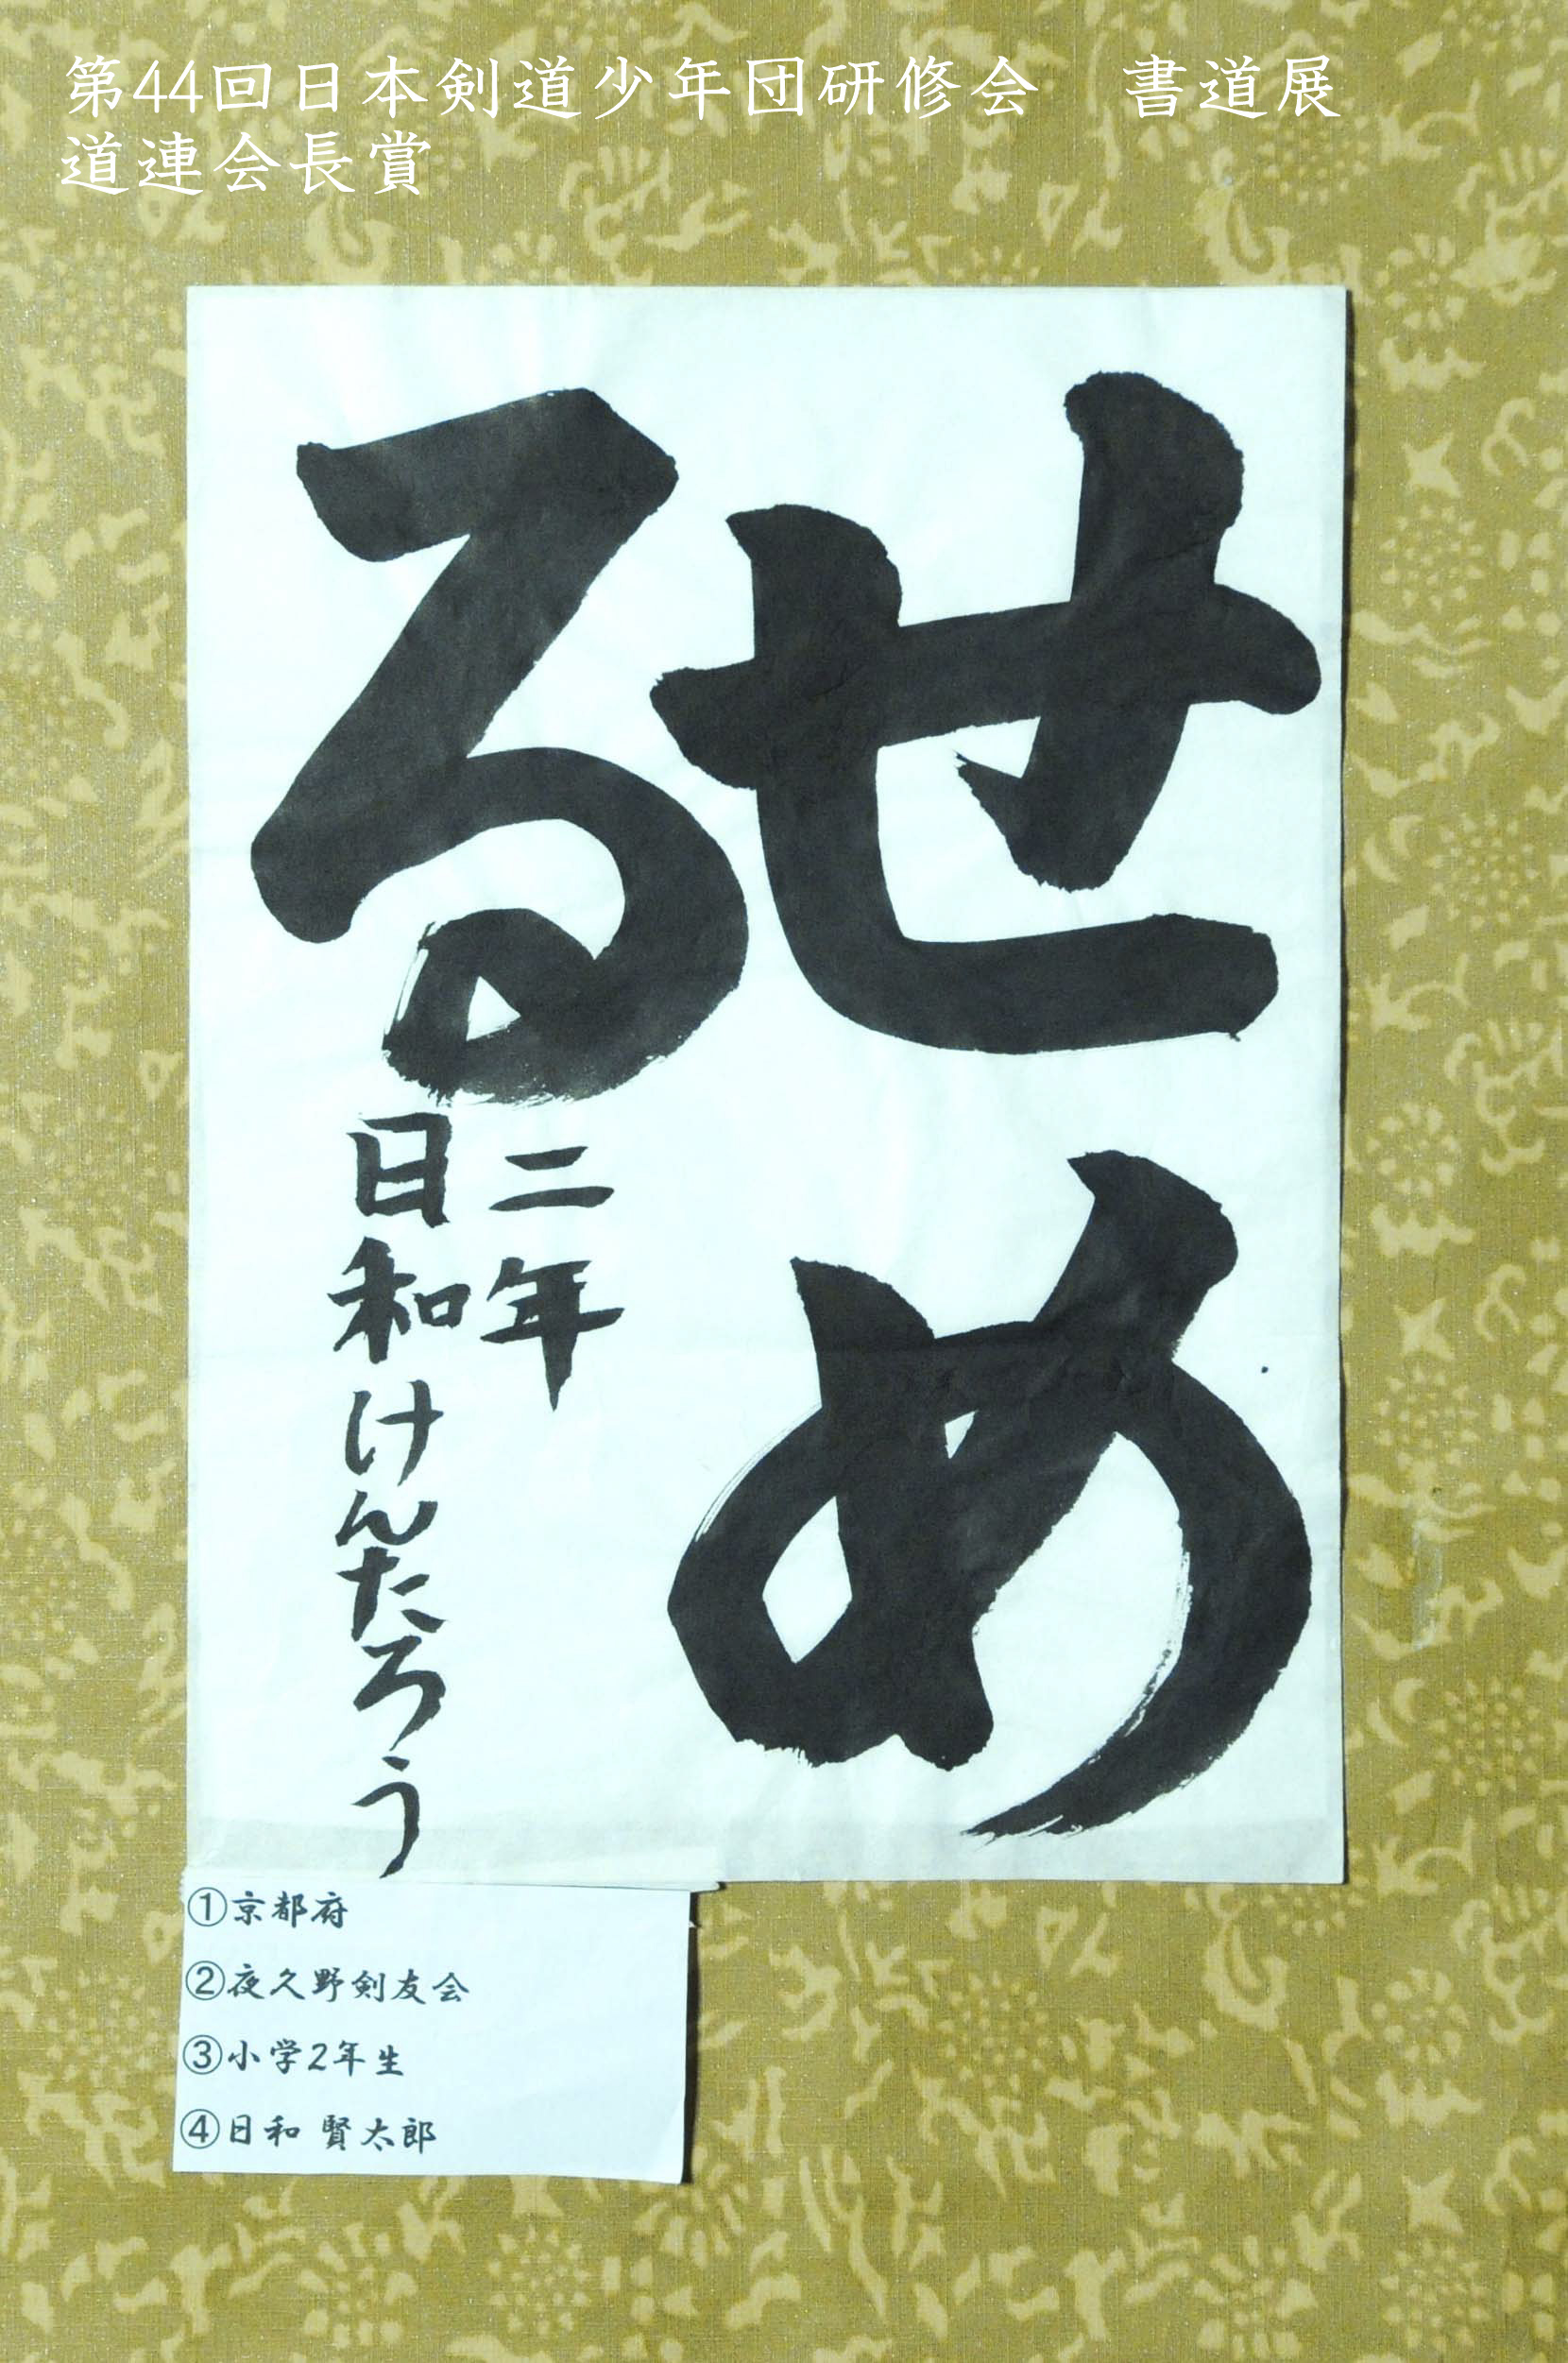 第44回日本剣道少年団研修会　書道展
道連会長賞
せめ
る
二年
日和けんたろう
①京都府
②夜久野剣友会
③小学2年生
④日和 賢太郎